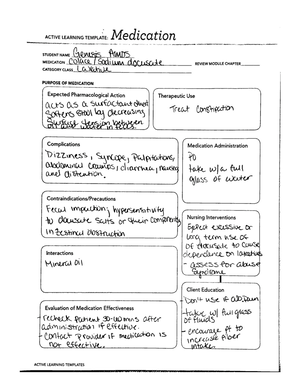 ACTIVE LEARNING TEMPLATE: Medication
STUDENT NAME Genesis
MEDICATION Colace/Sodium docusate
REVIEW MODULE CHAPTER
CATEGORY CLASS Laxative
PURPOSE OF MEDICATION
Expected Pharmacological Action
acts as a surfactant that
softens stool by decreasing
surface tension between
oil and water in feces.
Therapeutic Use
Treat Constipation
Complications
Dizziness, Syncope, Palpitations,
abdominal cramps, diarrhea, nausea
and distention.
Medication Administration
PO
take w/a full
glass of water
Contraindications/Precautions
Fecal impaction, hypersensitivity
to docusate salts or their components,
intestinal obstruction
Nursing Interventions
Expect excessive or
long term use of
of docusate to cause
dependence on laxatives
- assess for abuse
syndrome
Interactions
Mineral Oil
Client Education
- Don't use if abd pain
- take w/full glass
of fluids
- encourage pt to
increase fiber
intake.
Evaluation of Medication Effectiveness
- recheck patient 30-60 mins after
administration if effective.
- Contact Provider if medication is
not effective.
ACTIVE LEARNING TEMPLATES